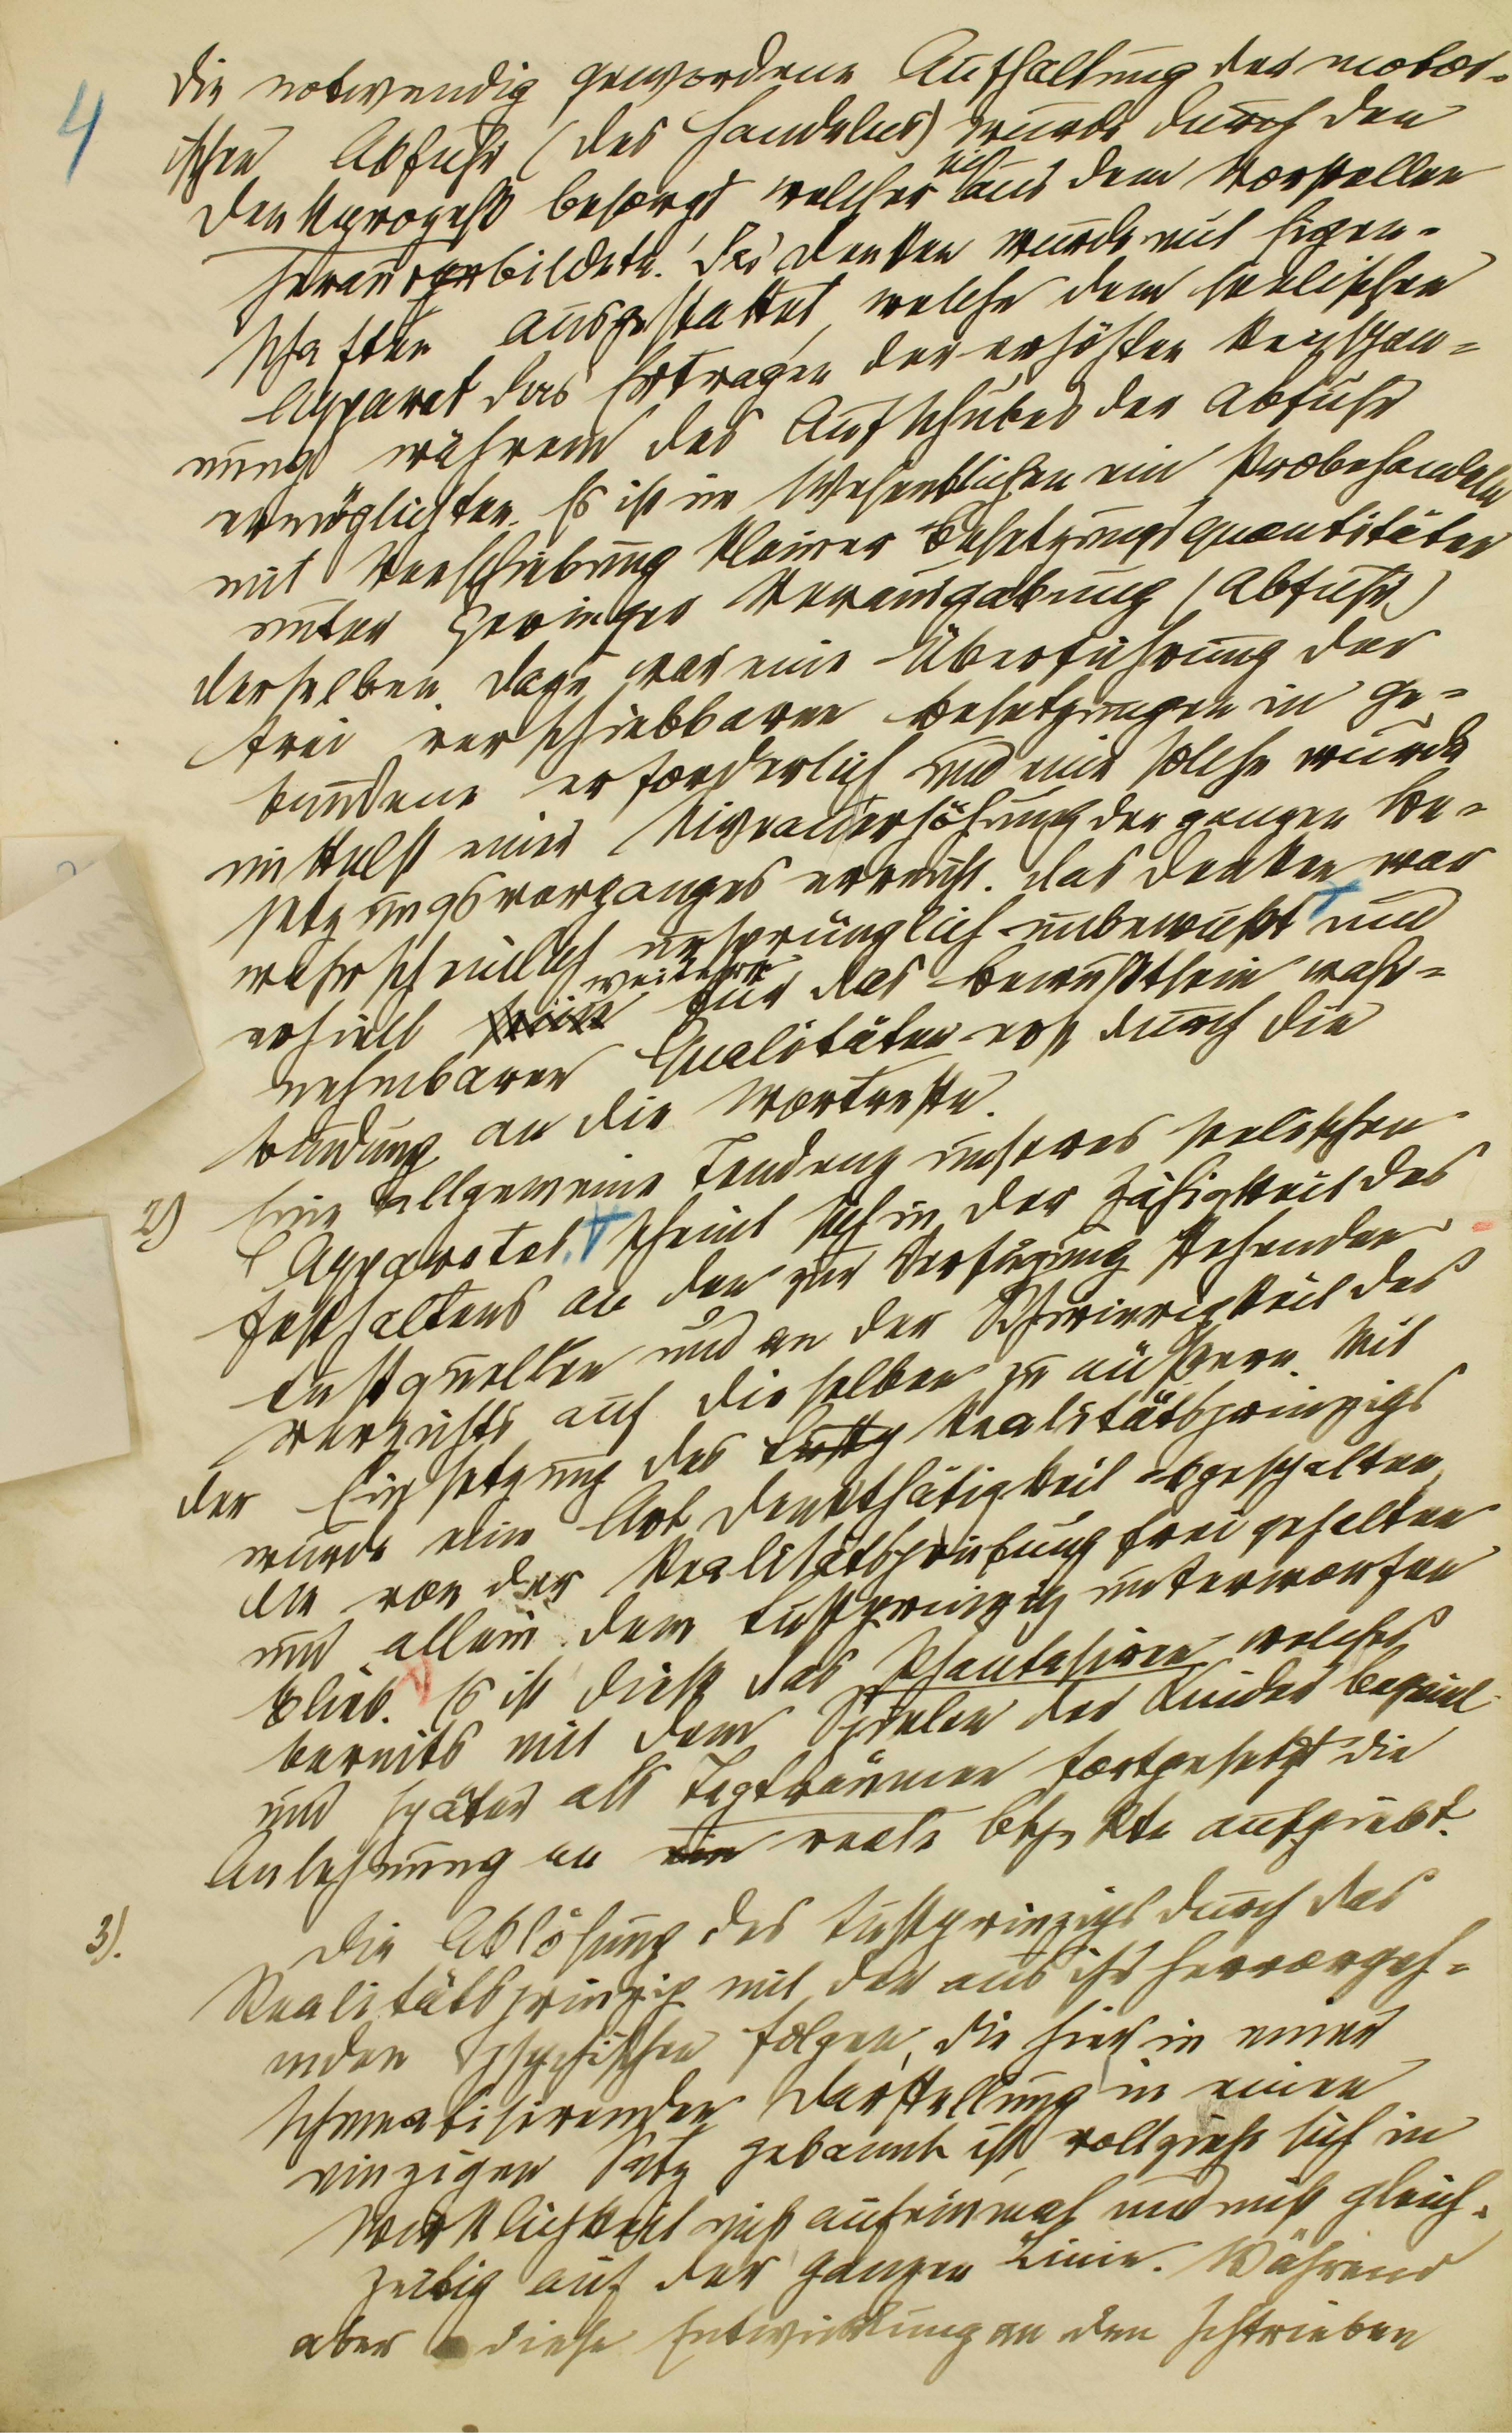 4
die notwendig gewordene Aufhaltung der motor-
ischen Abfuhr (des Handelns) wurde durch den
Denkprozeß besorgt welcher sich aus dem Vorstellen
herausbildete. Das Denken wurde mit Eigen-
schaften ausgestattet, welche dem seelischen
Apparat das Ertragen der erhöhten Reizspan-
nung während des Aufschubes der Abfuhr
ermöglichten. Es ist im Wesentlichen ein Probehandeln
mit Verschiebung kleiner Besetzungsquantitäten
unter geringer Verausgabung (Abfuhr)
derselben. Dazu war eine Überführung der
frei verschiebbaren Besetzungen in ge-
bundene erforderlich und eine solche wurde
mittelst einer Niveauerhöhung des ganzen Be-
setzungsvorganges erreicht. Das Denken war
wahrscheinlich ursprünglich unbewußt und
erhielt weitere für das Bewußtsein wahr-
nehmbaren Qualitäten erst durch die
Bindung an die Wortreste.
2) Eine allgemeine Tendenz unseres seelischen
Apparates scheint sich in der Zähigkeit des
Festhaltens an den zur Verfügung stehenden
Lustquellen und an der Schwierigkeit des
Verzichts auf dieselben zu äußern. Mit
der Einsetzung des Lustp Realitätsprinzips
wurde eine Art Denkthätigkeit abgespalten,
die von der Realitätsprüfung frei gehalten
und allein dem Lustprinzip unterworfen
blieb. Es ist dieß das Phantasiren welches
bereits mit dem Spielen der Kinder beginnt
und später als Tagträumen fortgesetzt die
Anlehnung an reale Objekte aufgiebt.
3). Die Ablösung des Lustprinzips durch das
Realitätsprinzip mit den aus ihr hervorgeh-
enden psychischen Folgen, die hier in einer
schematisirenden Darstellung in einen
einzigen Satz gebannt ist, vollzieht sich in
Wirklichkeit nicht auf einmal und nicht gleich-
zeitig auf der ganzen Linie. Während
aber diese Entwicklung an den Ichtrieben